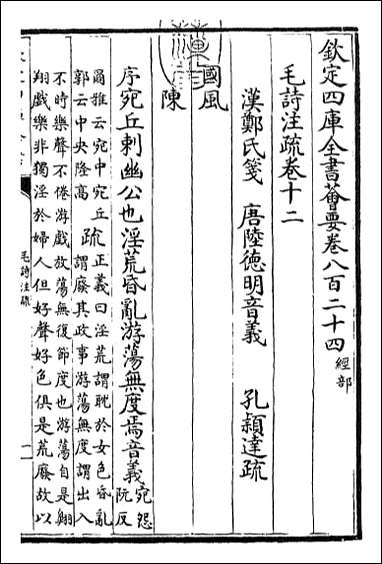 欽定四庫全書薈要卷八百二十四 經部
毛詩注疏卷十二
漢鄭氏箋 唐陸德明音義 孔穎達疏
國風
陳
序宛丘刺幽公也淫荒昏亂游蕩無度焉音義 宛怨阮反
爾雅云宛中宛丘 疏 正義曰淫荒謂耽於女色昏亂
郭云中央隆高 謂廢其政事游蕩無度謂出入
不時樂聲不倦游戲放蕩無復節度也游蕩自是翱
翔戲樂非獨淫於婦人但好聲好色俱是荒廢故以
毛詩注疏
一